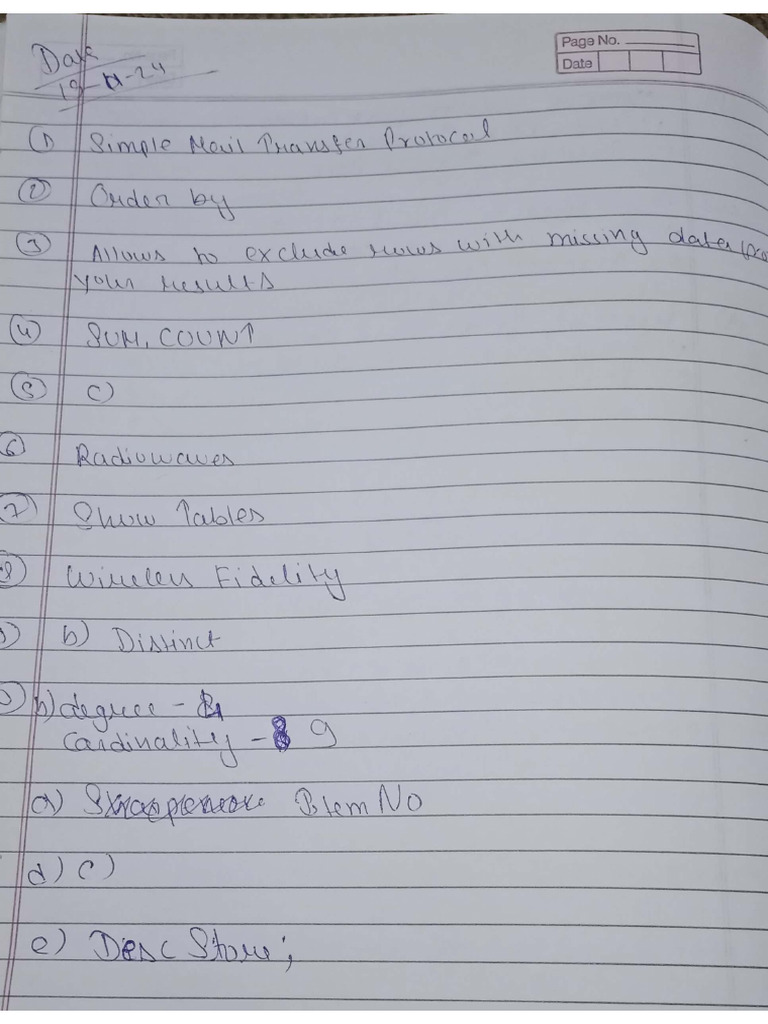 Page No.
Date
Date
19-11-24
① Simple Mail Transfer Protocol
② Order by
③ Allows to exclude rows with missing data from
your results
④ SUM, COUNT
⑤ c)
⑥ Radiowaves
⑦ Show Tables
⑧ Wireless Fidelity
b) Distinct
b) degree - 4
Cardinality - 9
a) Item No
d) c)
e) Desc Store;